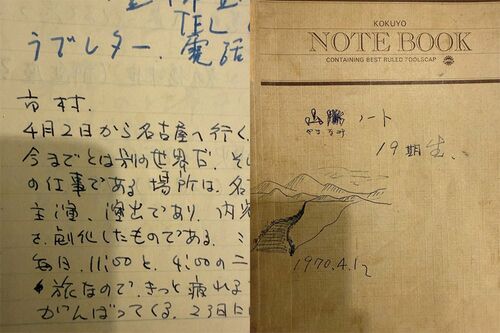 TEL
ラブレター. 電話
市村.
4月2日から名古屋へ行く.
今までとは別の世界だ. そ
の仕事である. 場所は. 名
主演、演出であり、内容
を.劇化したものである.
毎日. 11:00と. 4:00の二
旅なので、きっと疲れる
がんばってくる. 23日に
KOKUYO
NOTE BOOK
CONTAINING BEST RULED FOOLSCAP
山脈ノート
やまなみ
19期生.
1970.4.12